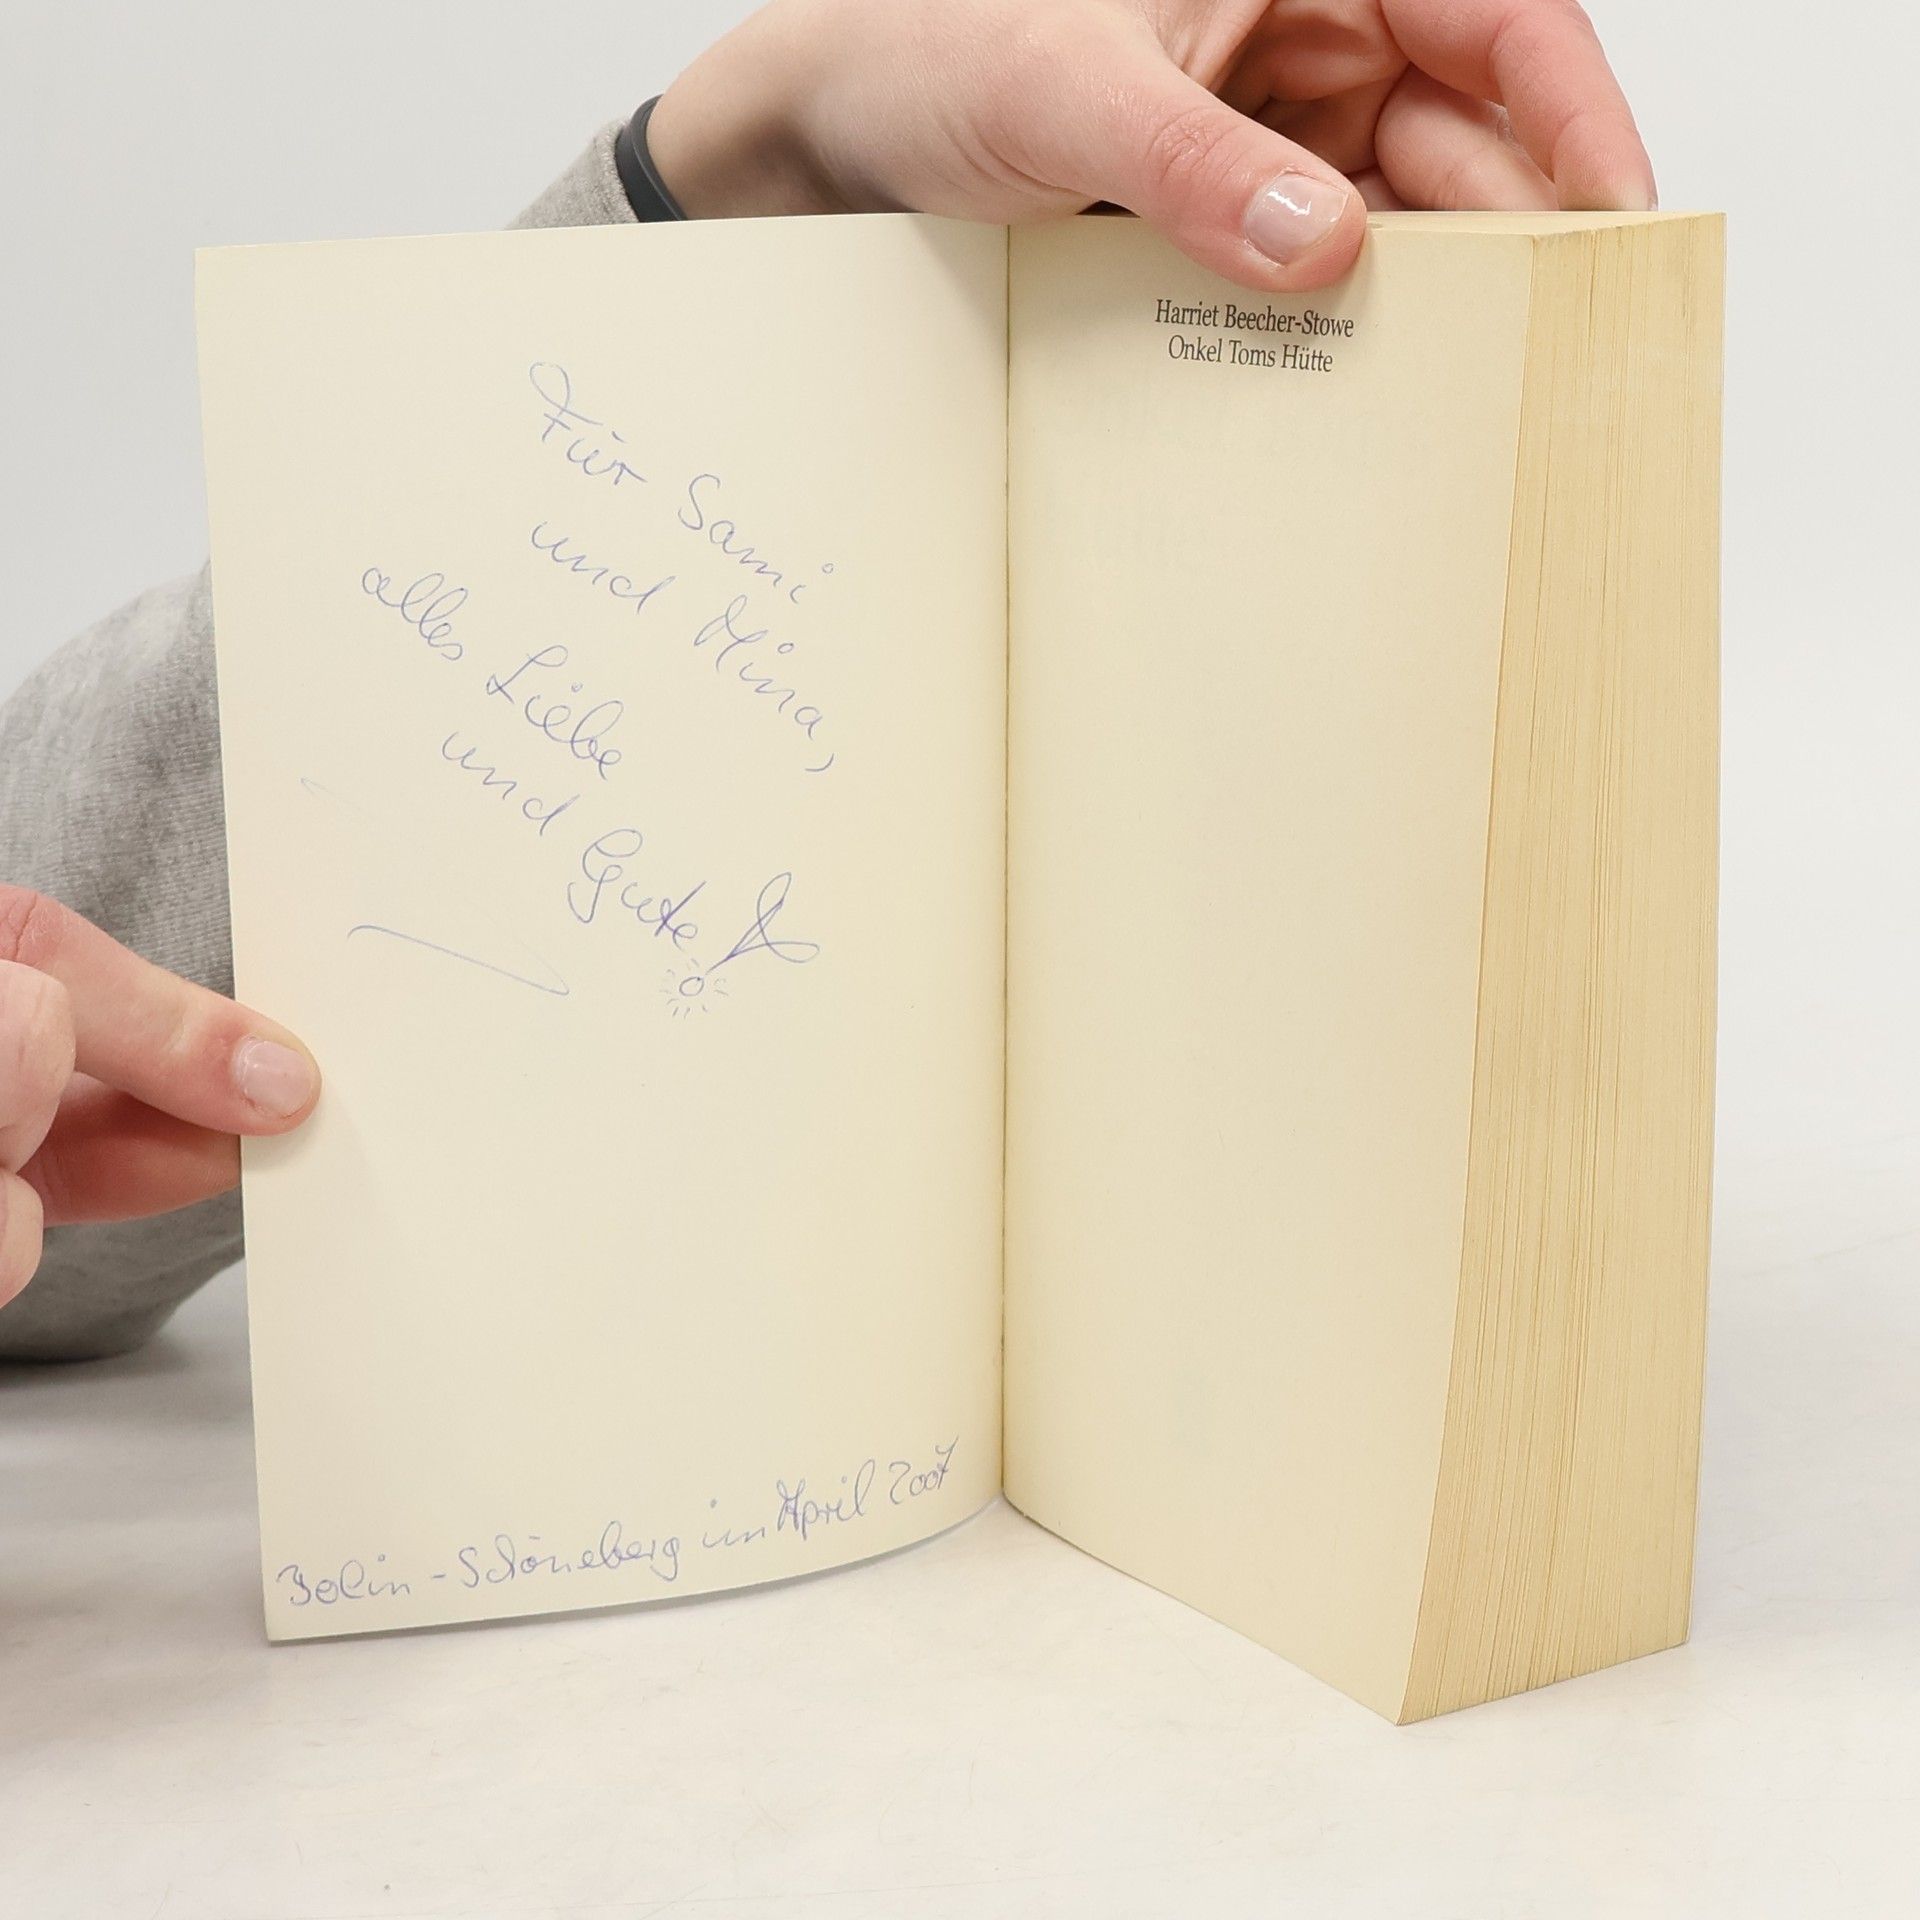 Für Sami
und Mina,
alles Liebe
und Gute
Berlin-Schöneberg im April 2007
Harriet Beecher-Stowe
Onkel Toms Hütte